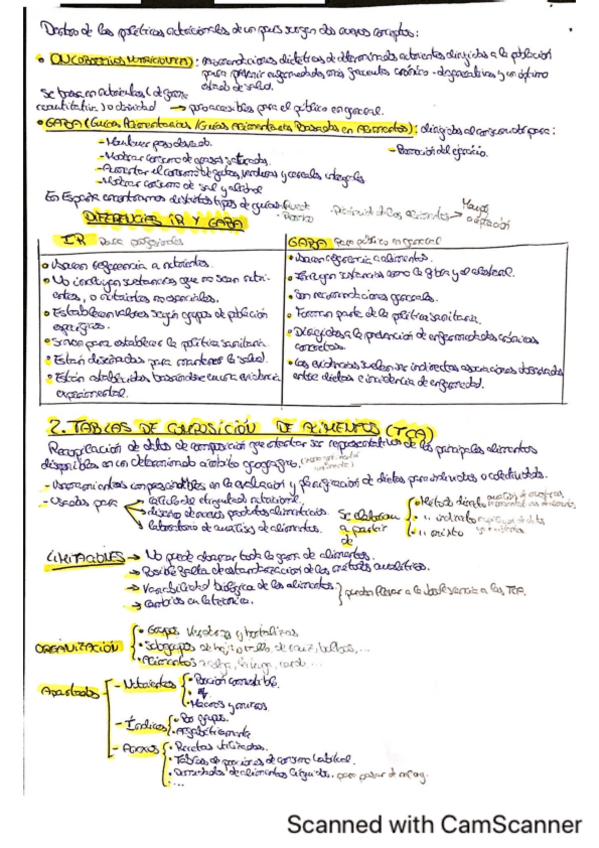 Dentro de las políticas nutricionales de un país surgen dos nuevos conceptos:
• OBJETIVOS NUTRICIONALES: recomendaciones dietéticas de determinados nutrientes dirigidas a la población
para prevenir enfermedades más frecuentes crónico-degenerativas y un óptimo
estado de salud.
Se basan en nutrientes (de forma
cuantitativa) → poco accesibles para el público en general.
• GABA (Guías Alimentarias / Guías Alimentarias Basadas en Alimentos): dirigidas al consumidor para:
- Mantener peso deseado. - Promoción del ejercicio.
- Moderar consumo de grasas saturadas.
- Aumentar el consumo de frutas, verduras y cereales integrales
- Moderar consumo de sal y alcohol
En España encontramos distintos tipos de guías: Rueda - Pirámide de los alimentos → Mayor
• Rombo aceptación
DIFERENCIAS IR Y GABA
IR Para profesionales
• Usan referencia a nutrientes.
• No incluyen sustancias que no sean nutri-
entes, o nutrientes no esenciales.
• Establecen valores según grupos de población
específicos.
• Sirven para establecer la política sanitaria.
• Están diseñadas para mantener la salud.
• Están establecidas basándose en una evidencia
experimental.
GABA Para público en general
• Usan referencia a alimentos.
• Incluyen sustancias como la fibra y el colesterol.
• Son recomendaciones generales.
• Forman parte de la política sanitaria.
• Dirigidas a la prevención de enfermedades crónicas
concretas.
• Las evidencias suelen ser indirectas asociaciones observadas
entre dietas e incidencia de enfermedad.
2. TABLAS DE COMPOSICIÓN DE ALIMENTOS (TCA)
Recopilación de datos de composición que intentan ser representativos de los principales alimentos
disponibles en un determinado ámbito geográfico.
- Herramientas imprescindibles en la evaluación y planificación de dietas para individuos o colectividades.
- Usadas para → cálculo de etiquetado nutricional.
→ diseño de nuevos productos alimenticios.
→ laboratorio de análisis de alimentos.
Se elaboran
a partir
de
• Método directo
• " indirecto
• " mixto
LIMITACIONES → No puede abarcar toda la gama de alimentos.
→ Posible falta de estandarización de los métodos analíticos.
→ Variabilidad biológica de los alimentos.
→ Cambios en la técnica.
pueden llevar a la obsolescencia a las TCA.
ORGANIZACIÓN
• Grupos Verduras y hortalizas
• Subgrupos de hoja, tallo, de raíz, bulbos,...
• Alimentos acelga, lechuga, cardo...
Apartados
- Nutrientes • Porción comestible.
• Macros y micros.
- Índices • Por grupos.
• Alfabéticamente
- Anexos • Recetas utilizadas.
• Tablas de porciones de consumo habitual.
• Densidades de alimentos líquidos.
• ...
Scanned with CamScanner